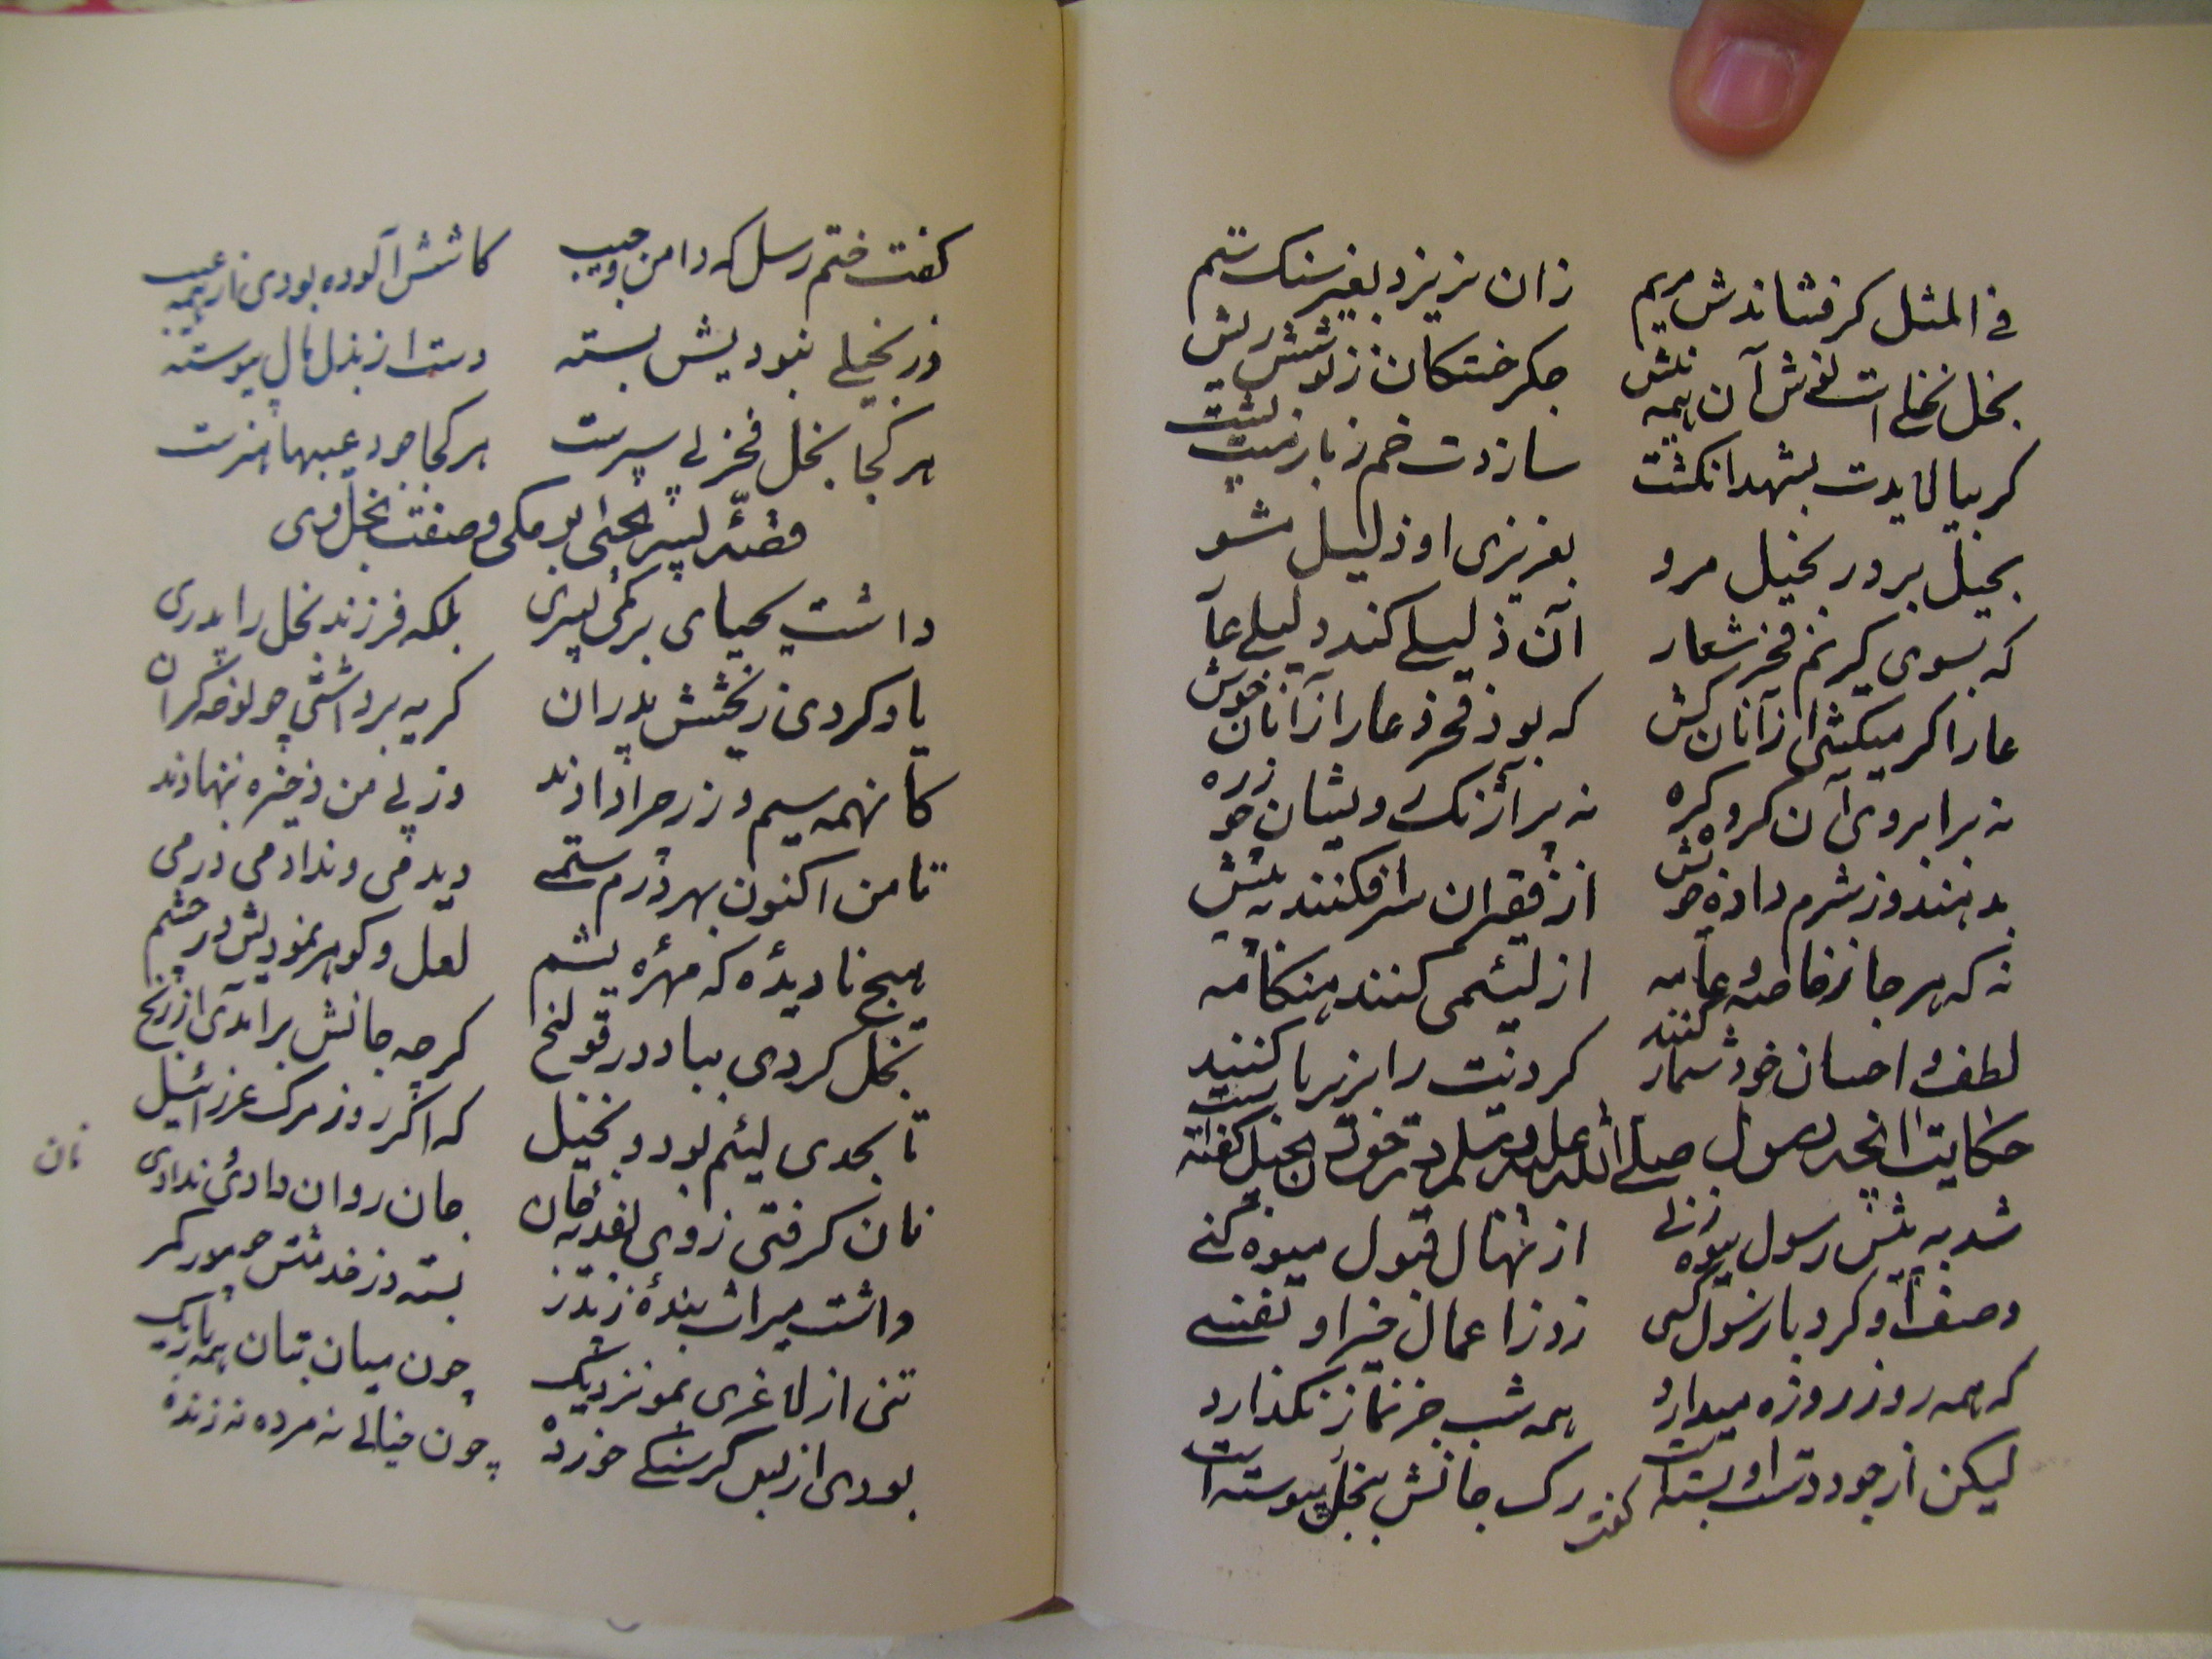 فی المثل کر فشاندش مریم
زان نریزد بغیر سنک ستم
بخل نخلی است
جکر خستکان ز نوشش ریش
کر بیالایدت بشهد انکشت
سازدت خم ز بار منت پشت
بخیل بر در بخیل مرو
بعزیزی او ذلیل مشو
که بسوی کریم فخر شعار
آن ذلیلی کند دلیلی عار
عار اکر میکشی از آنان کش
که بود فخر عار از آنان خوش
نه بر ابروی آن کرو کره
نه بر آژنک رویشان چو زره
بدهند وز شرم داده خویش
از فقیران سر افکنند به پیش
نه که هر جا ز خاصه و عامه
از لئیمی کنند هنکامه
لطف و احسان خود شمار کنند
کردنت را بزیر بار کنند
حکایت انجه رسول صلی الله علیه و سلم در حق زن بخیل کفته است
شد به پیش رسول بیوه زنی
از نهال قبول میوه کنی
وصف او کرد با رسول کسی
زد ز اعمال خیر او نفسی
که همه روز روزه میدارد
همه شب جز نماز نکذارد
لیکن از جود دست او بسته است
رک جانش ببخل پیوسته است
کفت
کفت ختم رسل که دامن و جیب
کاشش آلوده بودی از همه عیب
وز بخیلی نبودیش بسته
دست از بذل مال پیوسته
هر کجا بخل فخر بی سپرست
هر کجا جود عیبها هنرست
قصهٔ پسر یحیی برمکی و صفت بخل وی
داشت یحیای برمکی پسری
بلکه فرزند بخل را پدری
یاد کردی ز بخشش پدران
کریه برداشتی چو نوحه کران
کانهمه سیم و زر چرا دادند
وز پی من ذخیره ننهادند
تا من اکنون بهر درم ستمی
دیدمی و ندادمی درمی
هیچ نادیده که مهره یشم
لعل و کوهر نمودیش در چشم
بخل کردی بباد در قولنج
کر چه جانش بر آمدی از رنج
تا بحدی لئیم بود و بخیل
که اکر روز مرک عزرائیل
نان کرفتی ز وی بفدیه جان
جان روان دادی و ندادی
نان
داشت میراث بنده ز پدر
بسته در خدمتش چو مور کمر
تنی از لاغری بمو نزدیک
چون میان بتان همه باریک
بودی از بس کرسنکی خورده
چون خیالی نه مرده نه زنده